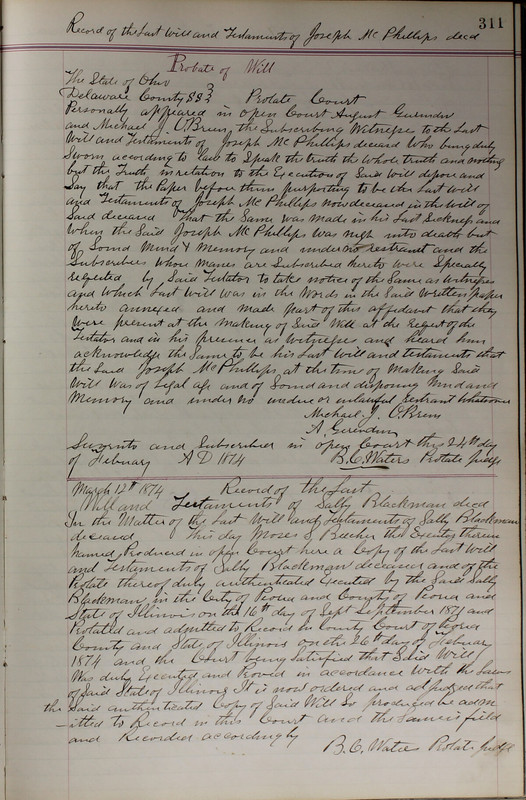 311
Record of the Last Will and Testaments of Joseph Mc Phillips decd
Probate of Will
The State of Ohio
Delaware County SS Probate Court
Personally appeared in open Court August
and Michael J. O.Brien the Subscribing Witnesses to the Last
Will and Testaments of Joseph Mc Phillips deceased Who being duly
Sworn according to law to Speak the truth the Whole truth and nothing
but the Truth, in relation to the Execution of Said Will depose and
Say that the Paper before them purporting to be the Last Will
and Testaments of Joseph Mc Phillips now deceased in the Will of
Said deceased That the Same was made in his Last Sickness and
When the Said Joseph Mc Phillips was nigh unto death but
of Sound Mind & Memory and under no restraint and the
Subscribers Whose Names are Subscribed hereto were Specially
requested by Said Testator to take notice of the Same as Witnesses
and Which Last Will was in the Words in the Said Written paper
hereto annexed and made part of this affidavit that they
Were present at the Making of Said Will at the Request of the
Testator and in his presence as Witnesses and heard him
acknowledge the Same to be his Last Will and testaments that
the Said Joseph Mc Phillips, at the time of Making Said
Will Was of Legal age and of Sound and disposing Mind and
Memory and under no undue or unlawful restraint Whatsoever
Michael J. O.Brien
A.
Sworn to and Subscribed in open Court this 24th day
of February A D 1874 B. C. Waters Probate Judge
March 12th 1874 Record of the Last
Will and Testaments of Sally Blackman decd
In the Matter of the Last Will and Testaments of Sally Blackman
deceased This day Moses S. Beecher the Executor therein
Named, Produced in open Court here a Copy of the Last Will
and Testaments of Sally Blackman deceased and of the
Probate thereof duly authenticated Executed by the Said Sally
Blackman in the City of Peoria and County of Peoria and
State of Illinois on the 16th day of Sept September 1871 and
Probated and admitted to Record in County Court of Peoria
County and State of Illinois on the 26th day of February
1874 and the Court being Satisfied that Said Will
Was duly Executed and Proved in accordance With the Laws
of Said State of Illinois It is now ordered and adjudged that
the Said authenticated Copy of Said Will So produced be adm
itted to Record in this Court and the Same is filed
and Recorded accordingly
B. C. Waters Probate Judge